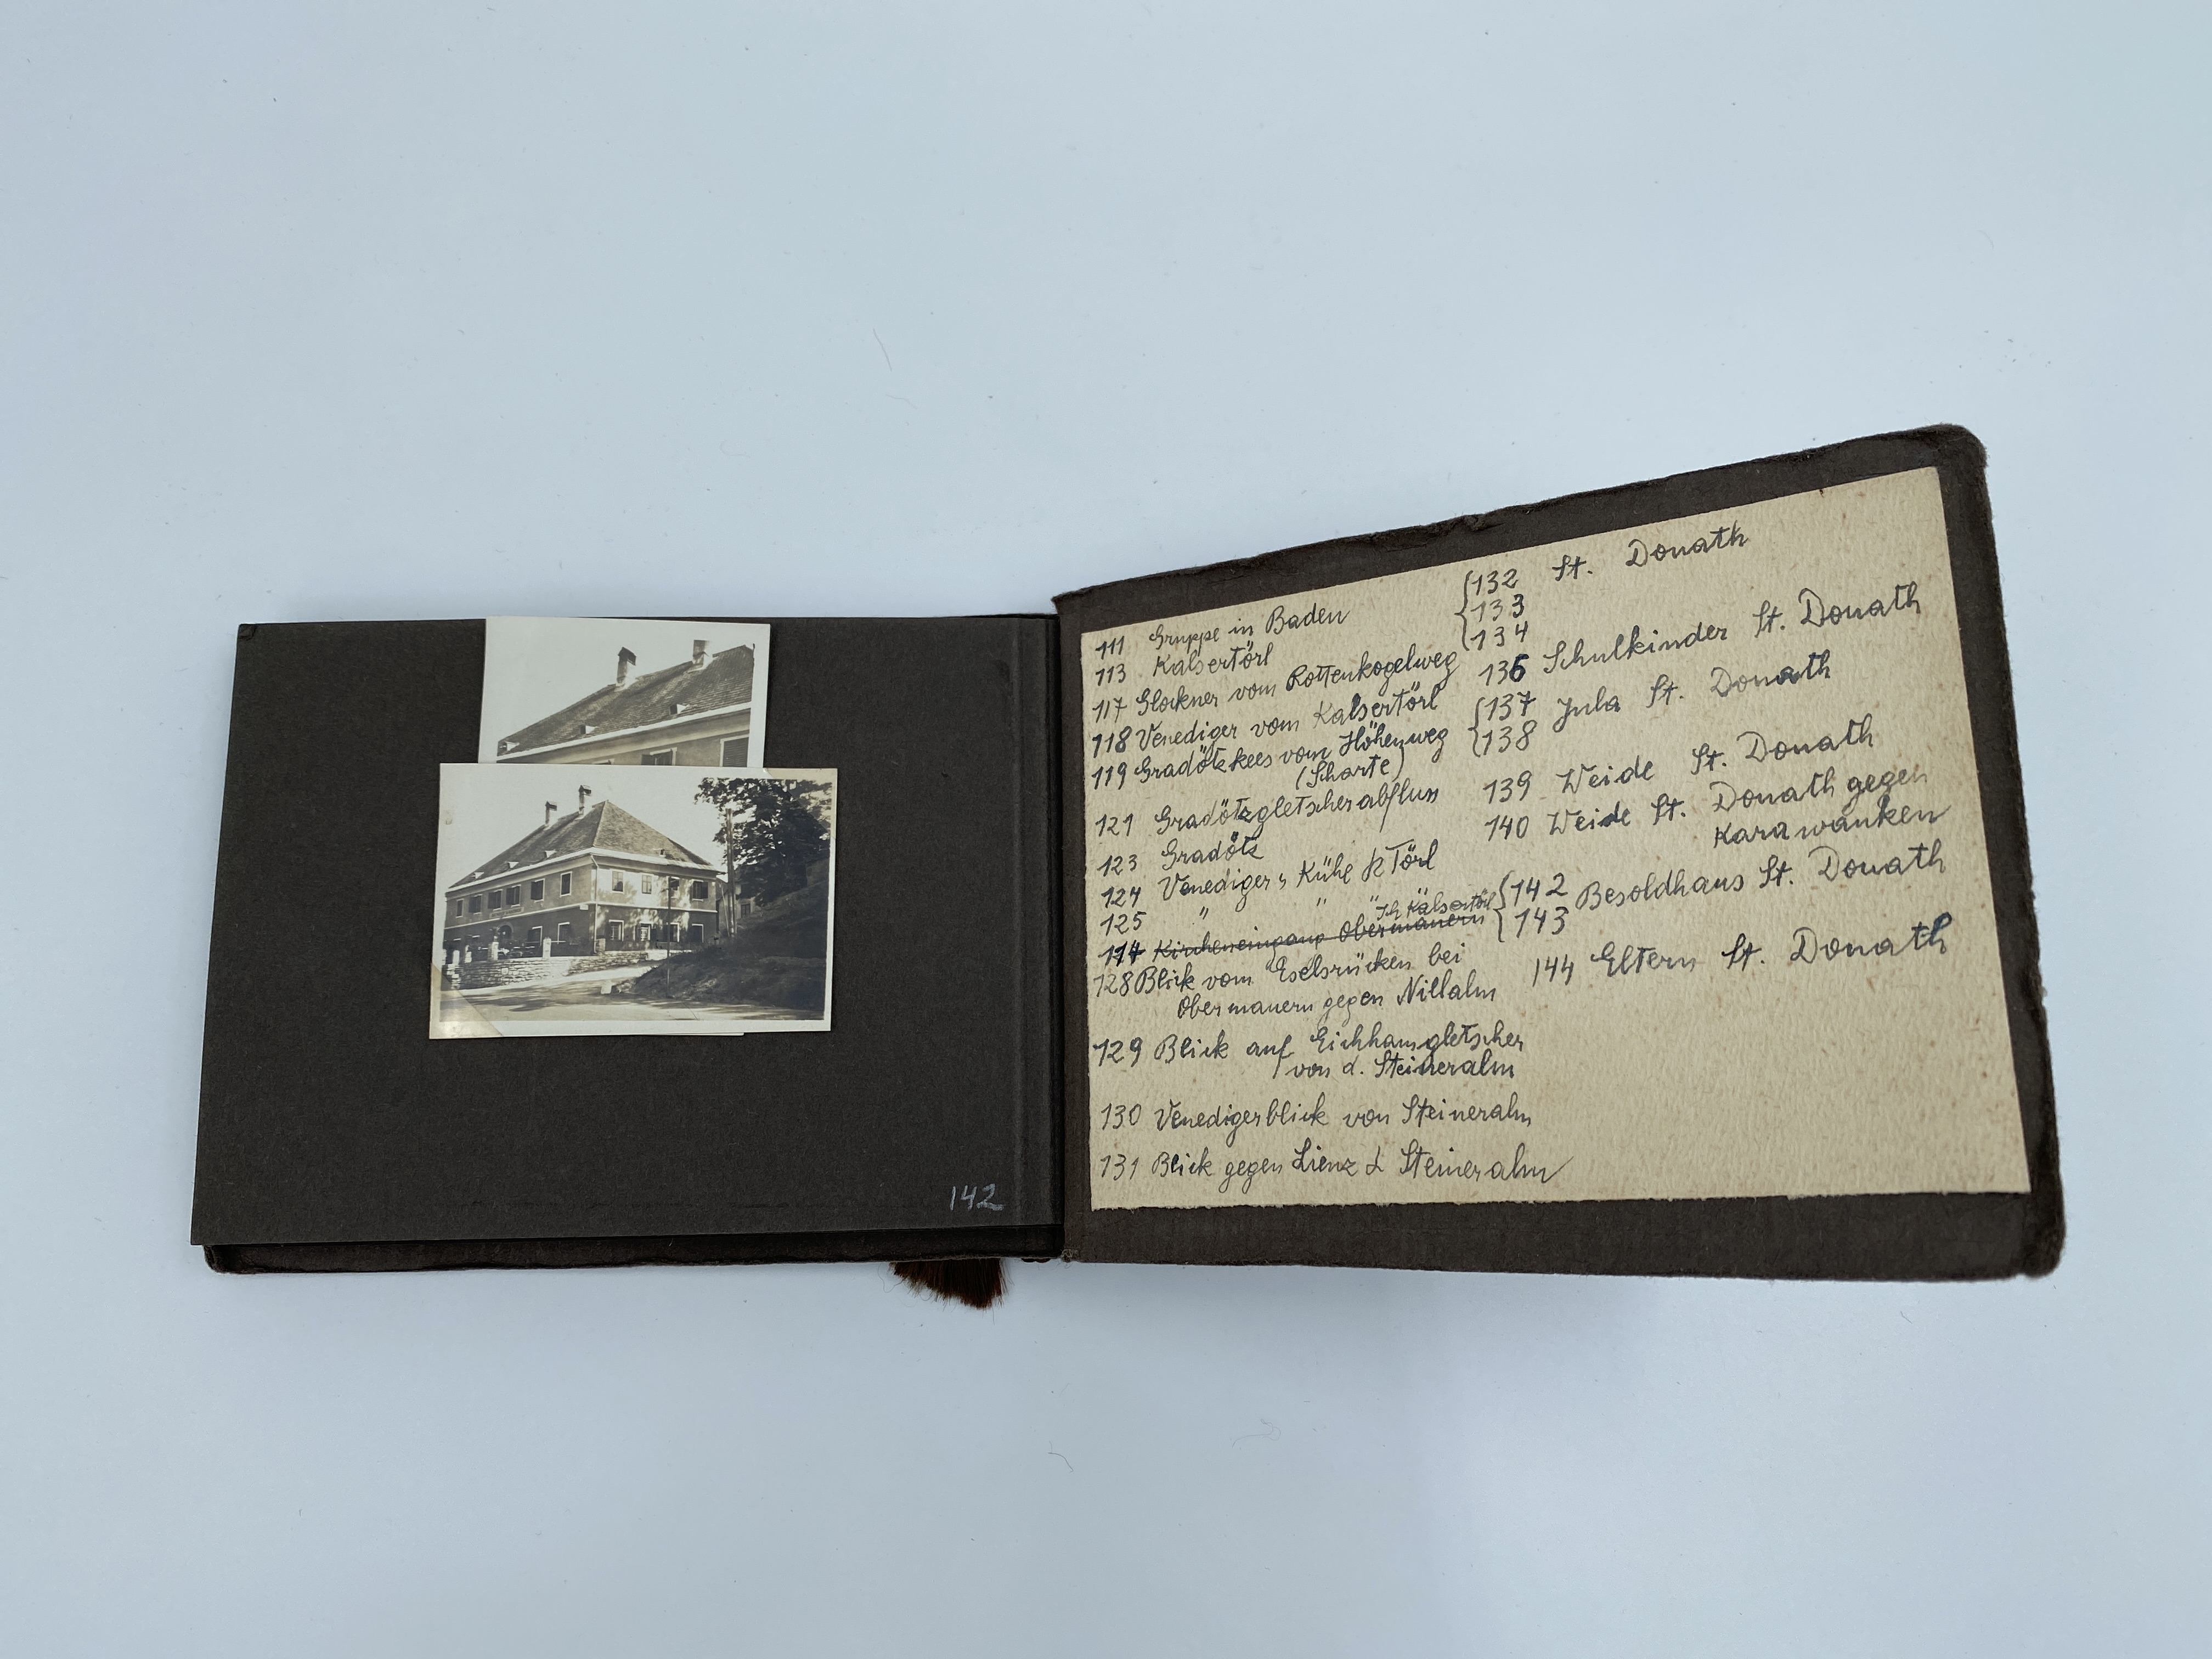 142
111 Gruppe in Baden
113 Kalsertörl
117 Glockner vom Rottenkogelweg
118 Venediger vom Kalsertörl
119 Gradötzkees vom Höhenweg
(Scharte)
121 Gradötzgletscherabfluss
123 Gradötz
124 Venediger, Kühe K Törl
125 " " "
Ich Kalsertörl
114 Kircheneingang Obermauern
128 Blick vom Eselsrücken bei
Obermauern gegen Nillalm
129 Blick auf Eichhamgletscher
von d. Steineralm
130 Venedigerblick von Steineralm
131 Blick gegen Lienz d Steineralm
132 St. Donath
133
134
136 Schulkinder St. Donath
137 Jula St. Donath
138
139 Weide St. Donath
140 Weide St. Donath gegen
Karawanken
142 Besoldhaus St. Donath
143
144 Eltern St. Donath